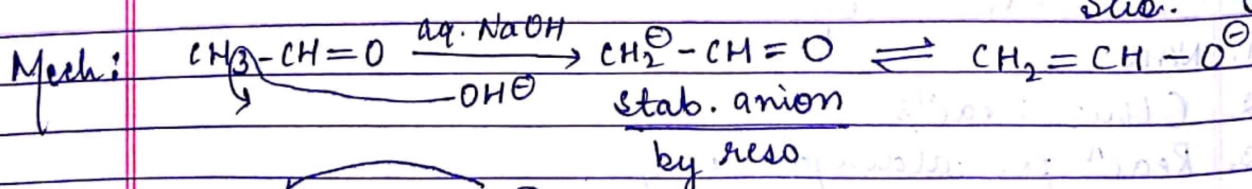 Mech: CH3-CH=O aq. NaOH → CH₂⊖-CH=O ⇌ CH₂=CH-O⊖
OH⊖
stab. anion
by reso